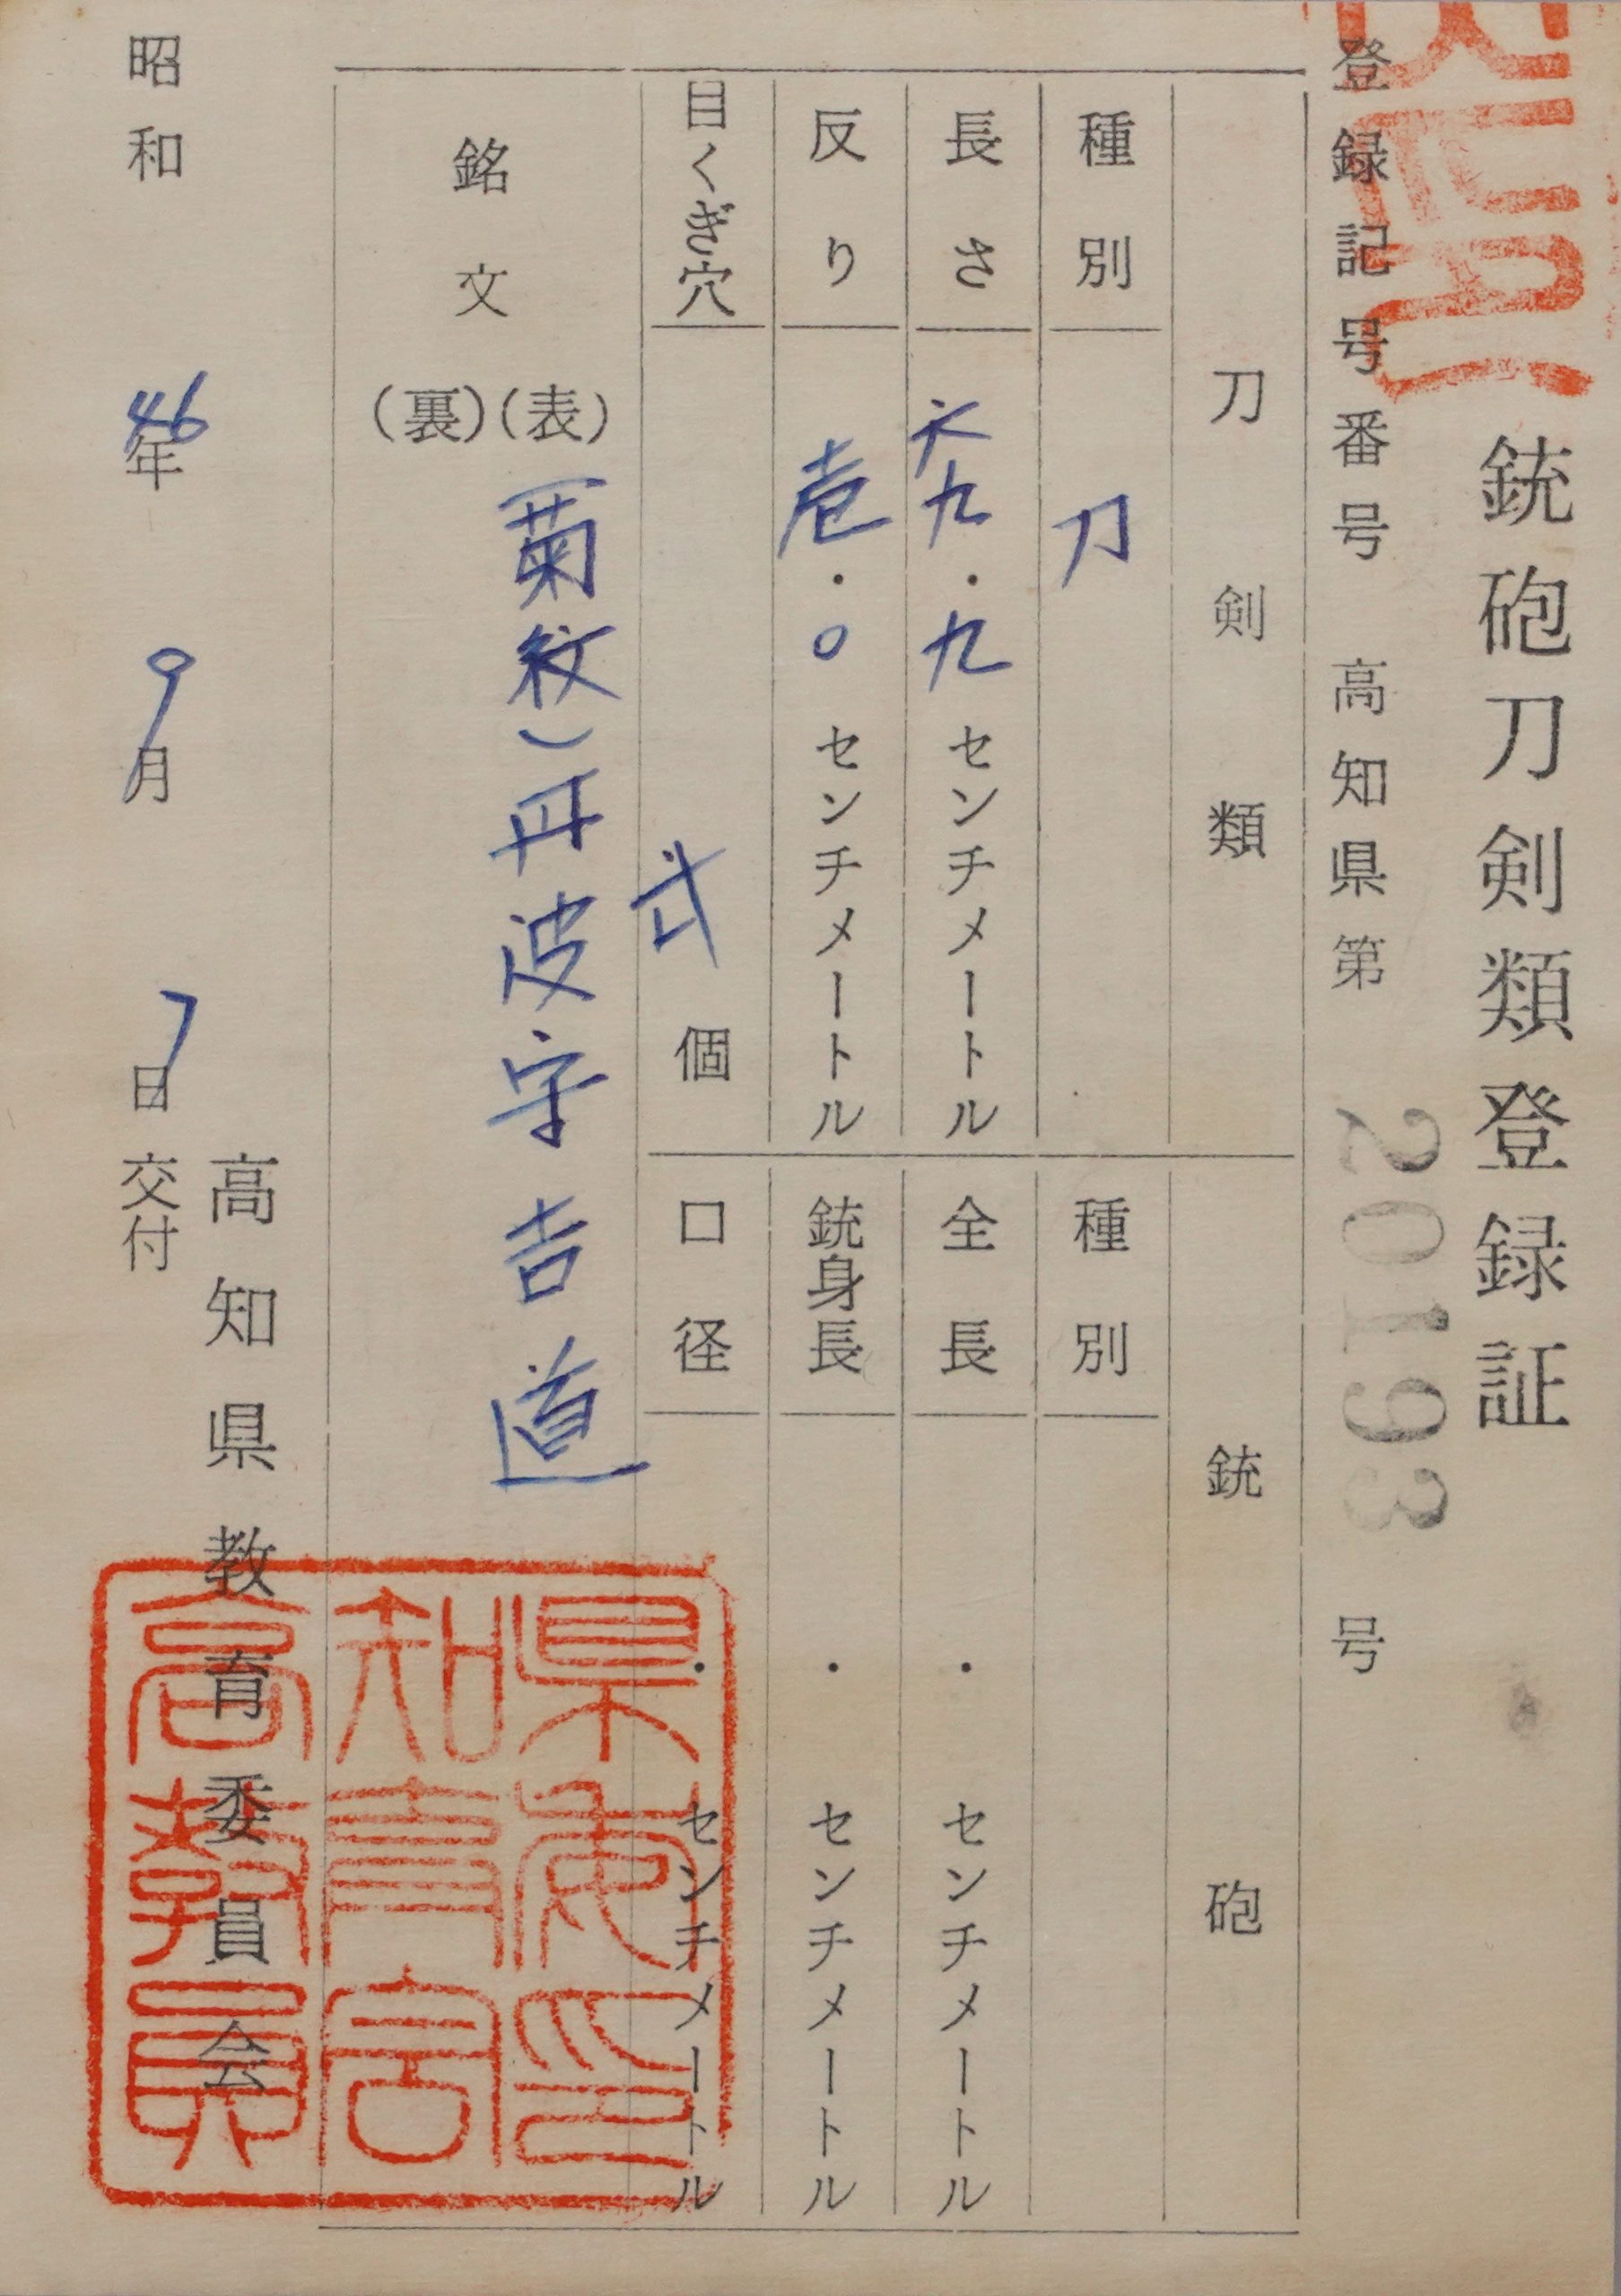 銃砲刀剣類登録証
登録記号番号 高知県第 20193 号
刀剣類
種別 刀
長さ 六九・九 センチメートル
反り 壱・〇 センチメートル
目くぎ穴 弐 個
銘文 (表) (菊紋)丹波守吉道
(裏)
銃砲
種別
全長 ・ センチメートル
銃身長 ・ センチメートル
口径 ・ センチメートル
高知県教育委員会
昭和 46年 9月 7日 交付
高知県教育委員会印